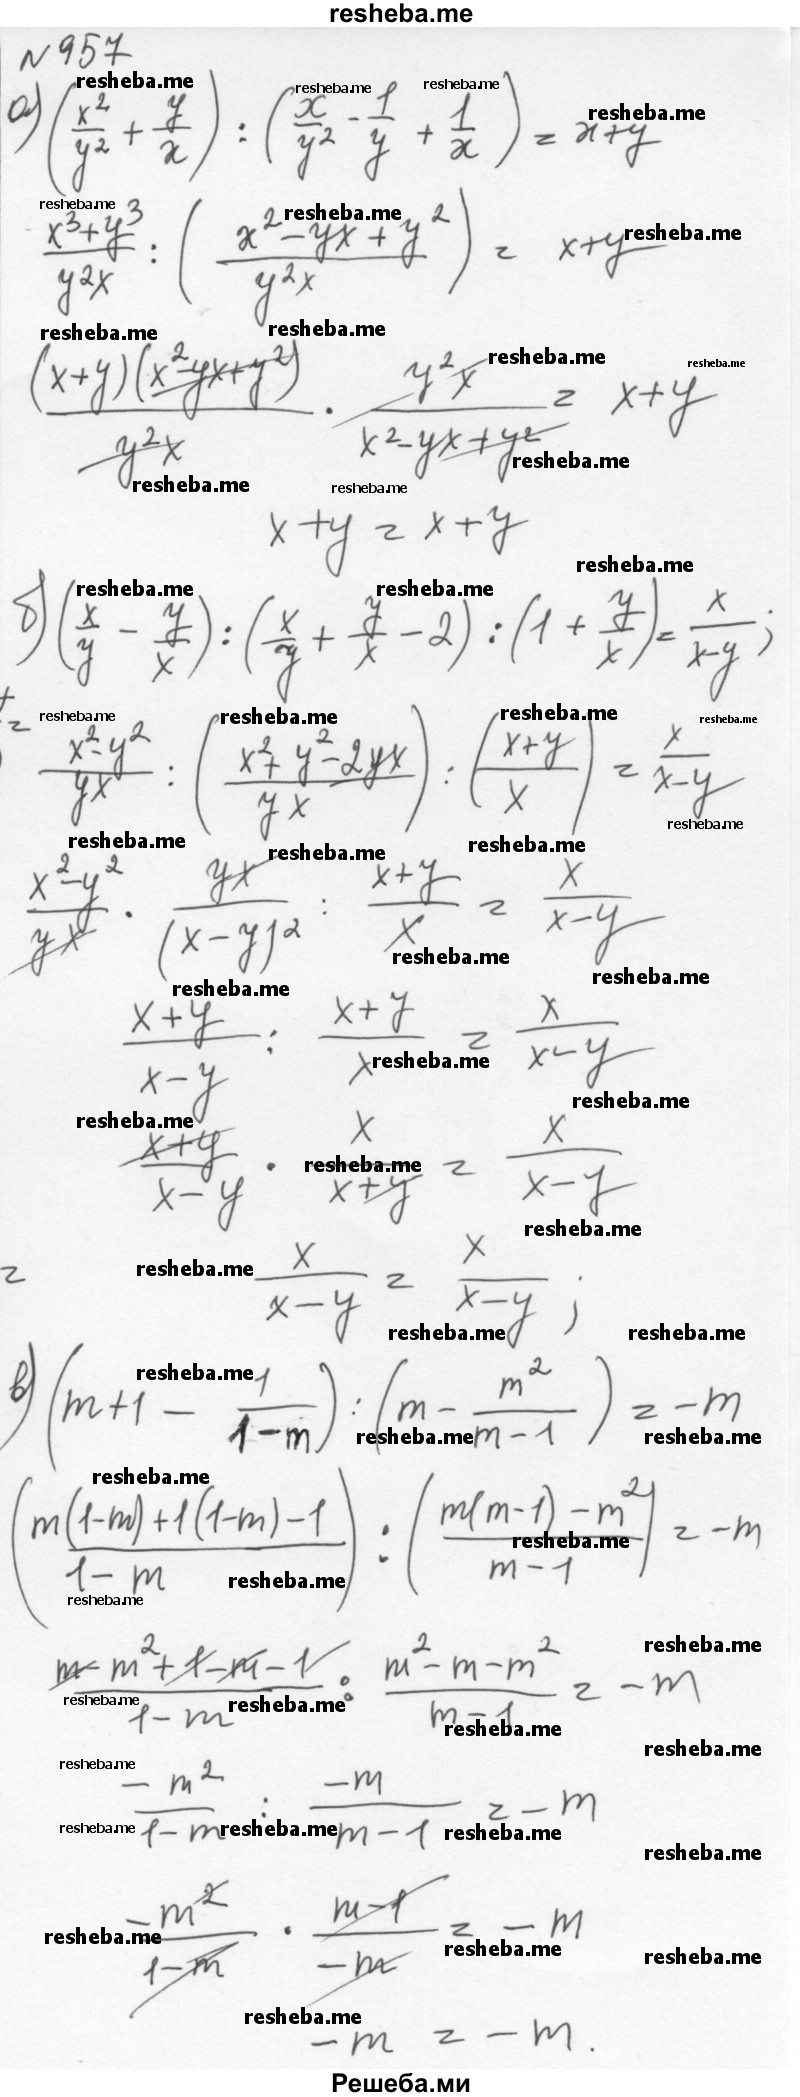 resheba.me
N 957
а) (x²/y² + y/x) : (x/y² - 1/y + 1/x) = x+y
(x³+y³)/(y²x) : ((x²-yx+y²)/(y²x)) = x+y
((x+y)(x²-yx+y²))/(y²x) · (y²x)/(x²-yx+y²) = x+y
x+y = x+y
б) (x/y - y/x) : (x/y + y/x - 2) : (1 + y/x) = x/(x-y);
(x²-y²)/(yx) : ((x²+y²-2yx)/(yx)) : ((x+y)/x) = x/(x-y)
(x²-y²)/(yx) · (yx)/(x-y)² : (x+y)/x = x/(x-y)
(x+y)/(x-y) : (x+y)/x = x/(x-y)
(x+y)/(x-y) · x/(x+y) = x/(x-y)
x/(x-y) = x/(x-y);
в) (m+1 - 1/(1-m)) : (m - m²/(m-1)) = -m
((m(1-m)+1(1-m)-1)/(1-m)) : ((m(m-1)-m²)/(m-1)) = -m
(m-m²+1-m-1)/(1-m) : (m²-m-m²)/(m-1) = -m
(-m²)/(1-m) : (-m)/(m-1) = -m
(-m²)/(1-m) · (m-1)/(-m) = -m
-m = -m.
Решеба.ми